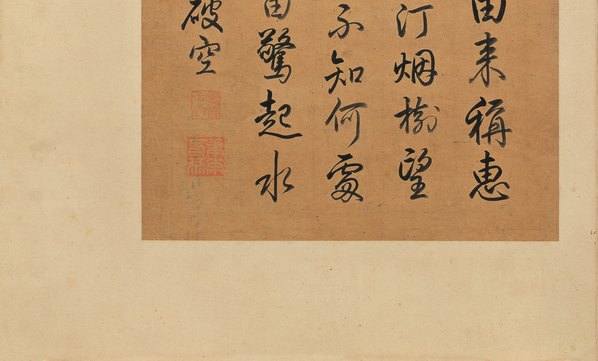 由来稱惠
汀烟樹望
不知何處
驚起水
破空